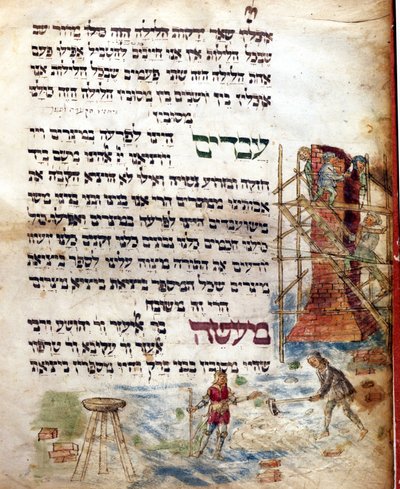 אוכלין שאר ירקות הלילה הזה כולו מרור שב
שבכל הלילות אין אנו חייבים לטבל אפילו פעם
אחת הלילה הזה שתי פעמים שבכל הלילות אנו
אוכלין בין יושבין ובין מסובין הלילה הזה כולנו
מסובין
עבדים היינו לפרעה במצרים וי
ויוציאנו יי אלהינו משם ביד
חזקה ובזרוע נטויה ואילו לא הוציא הקבה את
אבותינו ממצרים הרי אנו ובנינו ובני בנינו
משועבדים היינו לפרעה במצרים ואפילו
כולנו חכמים כולנו נבונים כלנו זקנים כלנו
יודעים את התורה מצוה עלינו לספר ביציאת
מצרים שכל המספר ביציאת מצרים
הרי זה משובח
מעשה בר אליעזר ור יהושע ורבי
עזר ור עקיבא ור טרפון
שהיו מסובין בבני ברק והיו מספרין ביציאת